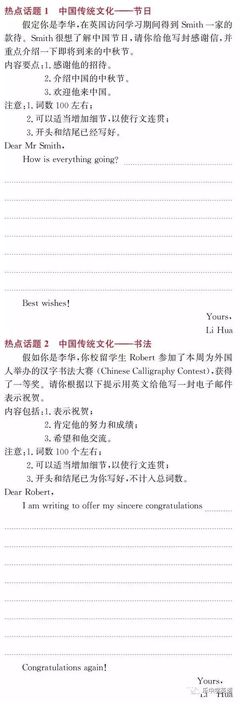 热点话题 1　中国传统文化——节日
假定你是李华,在英国访问学习期间得到 Smith 一家的
款待。Smith 很想了解中国节日,请你给他写封感谢信,并
重点介绍一下即将到来的中秋节。
内容要点:1. 感谢他的招待。
2. 介绍中国的中秋节。
3. 欢迎他来中国。
注意:1. 词数 100 左右;
2. 可以适当增加细节,以使行文连贯;
3. 开头和结尾已经写好。
Dear Mr Smith,
How is everything going?
Best wishes!
Yours,
Li Hua
热点话题 2　中国传统文化——书法
假如你是李华,你校留学生 Robert 参加了本周为外国
人举办的汉字书法大赛 (Chinese Calligraphy Contest),获得
了一等奖。请你根据以下提示用英文给他写一封电子邮件
表示祝贺。
内容包括:1. 表示祝贺;
2. 肯定他的努力和成绩;
3. 希望和他交流。
注意:1. 词数 100 个左右;
2. 可以适当增加细节,以使行文连贯;
3. 开头和结尾已为你写好,不计入总词数。
Dear Robert,
I am writing to offer my sincere congratulations
Congratulations again!
Yours,
Li Hua